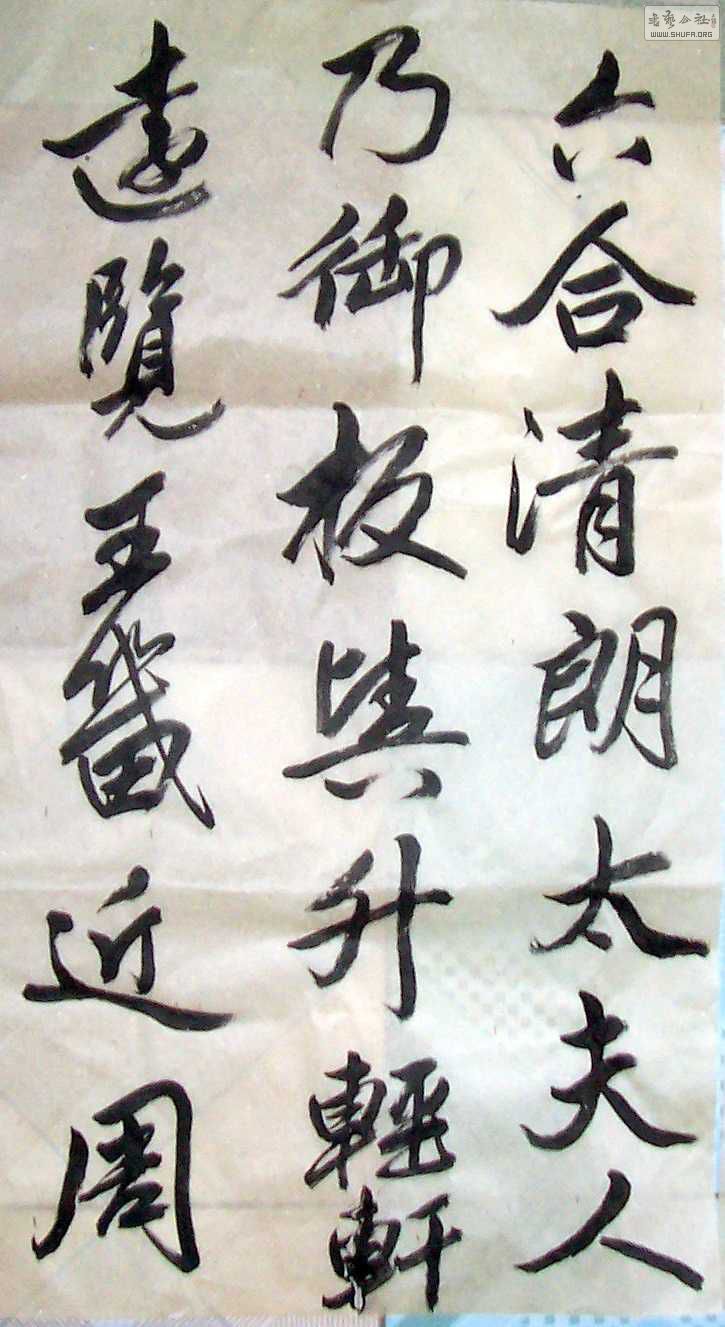 六合清朗太夫人
乃御板輿升輕軒
遠覽王畿近周
WWW.SHUFA.ORG